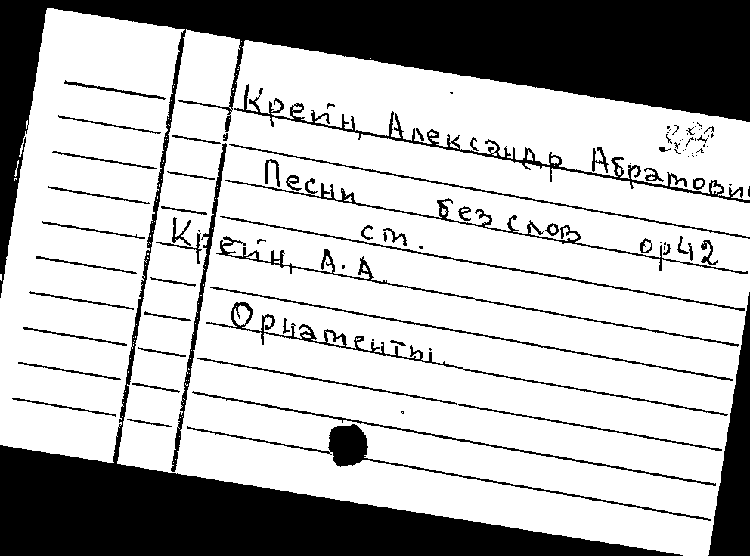 Крейн, Александр Абрамович
Песни без слов ор42
ст.
Крейн, А.А.
Орнаменты.